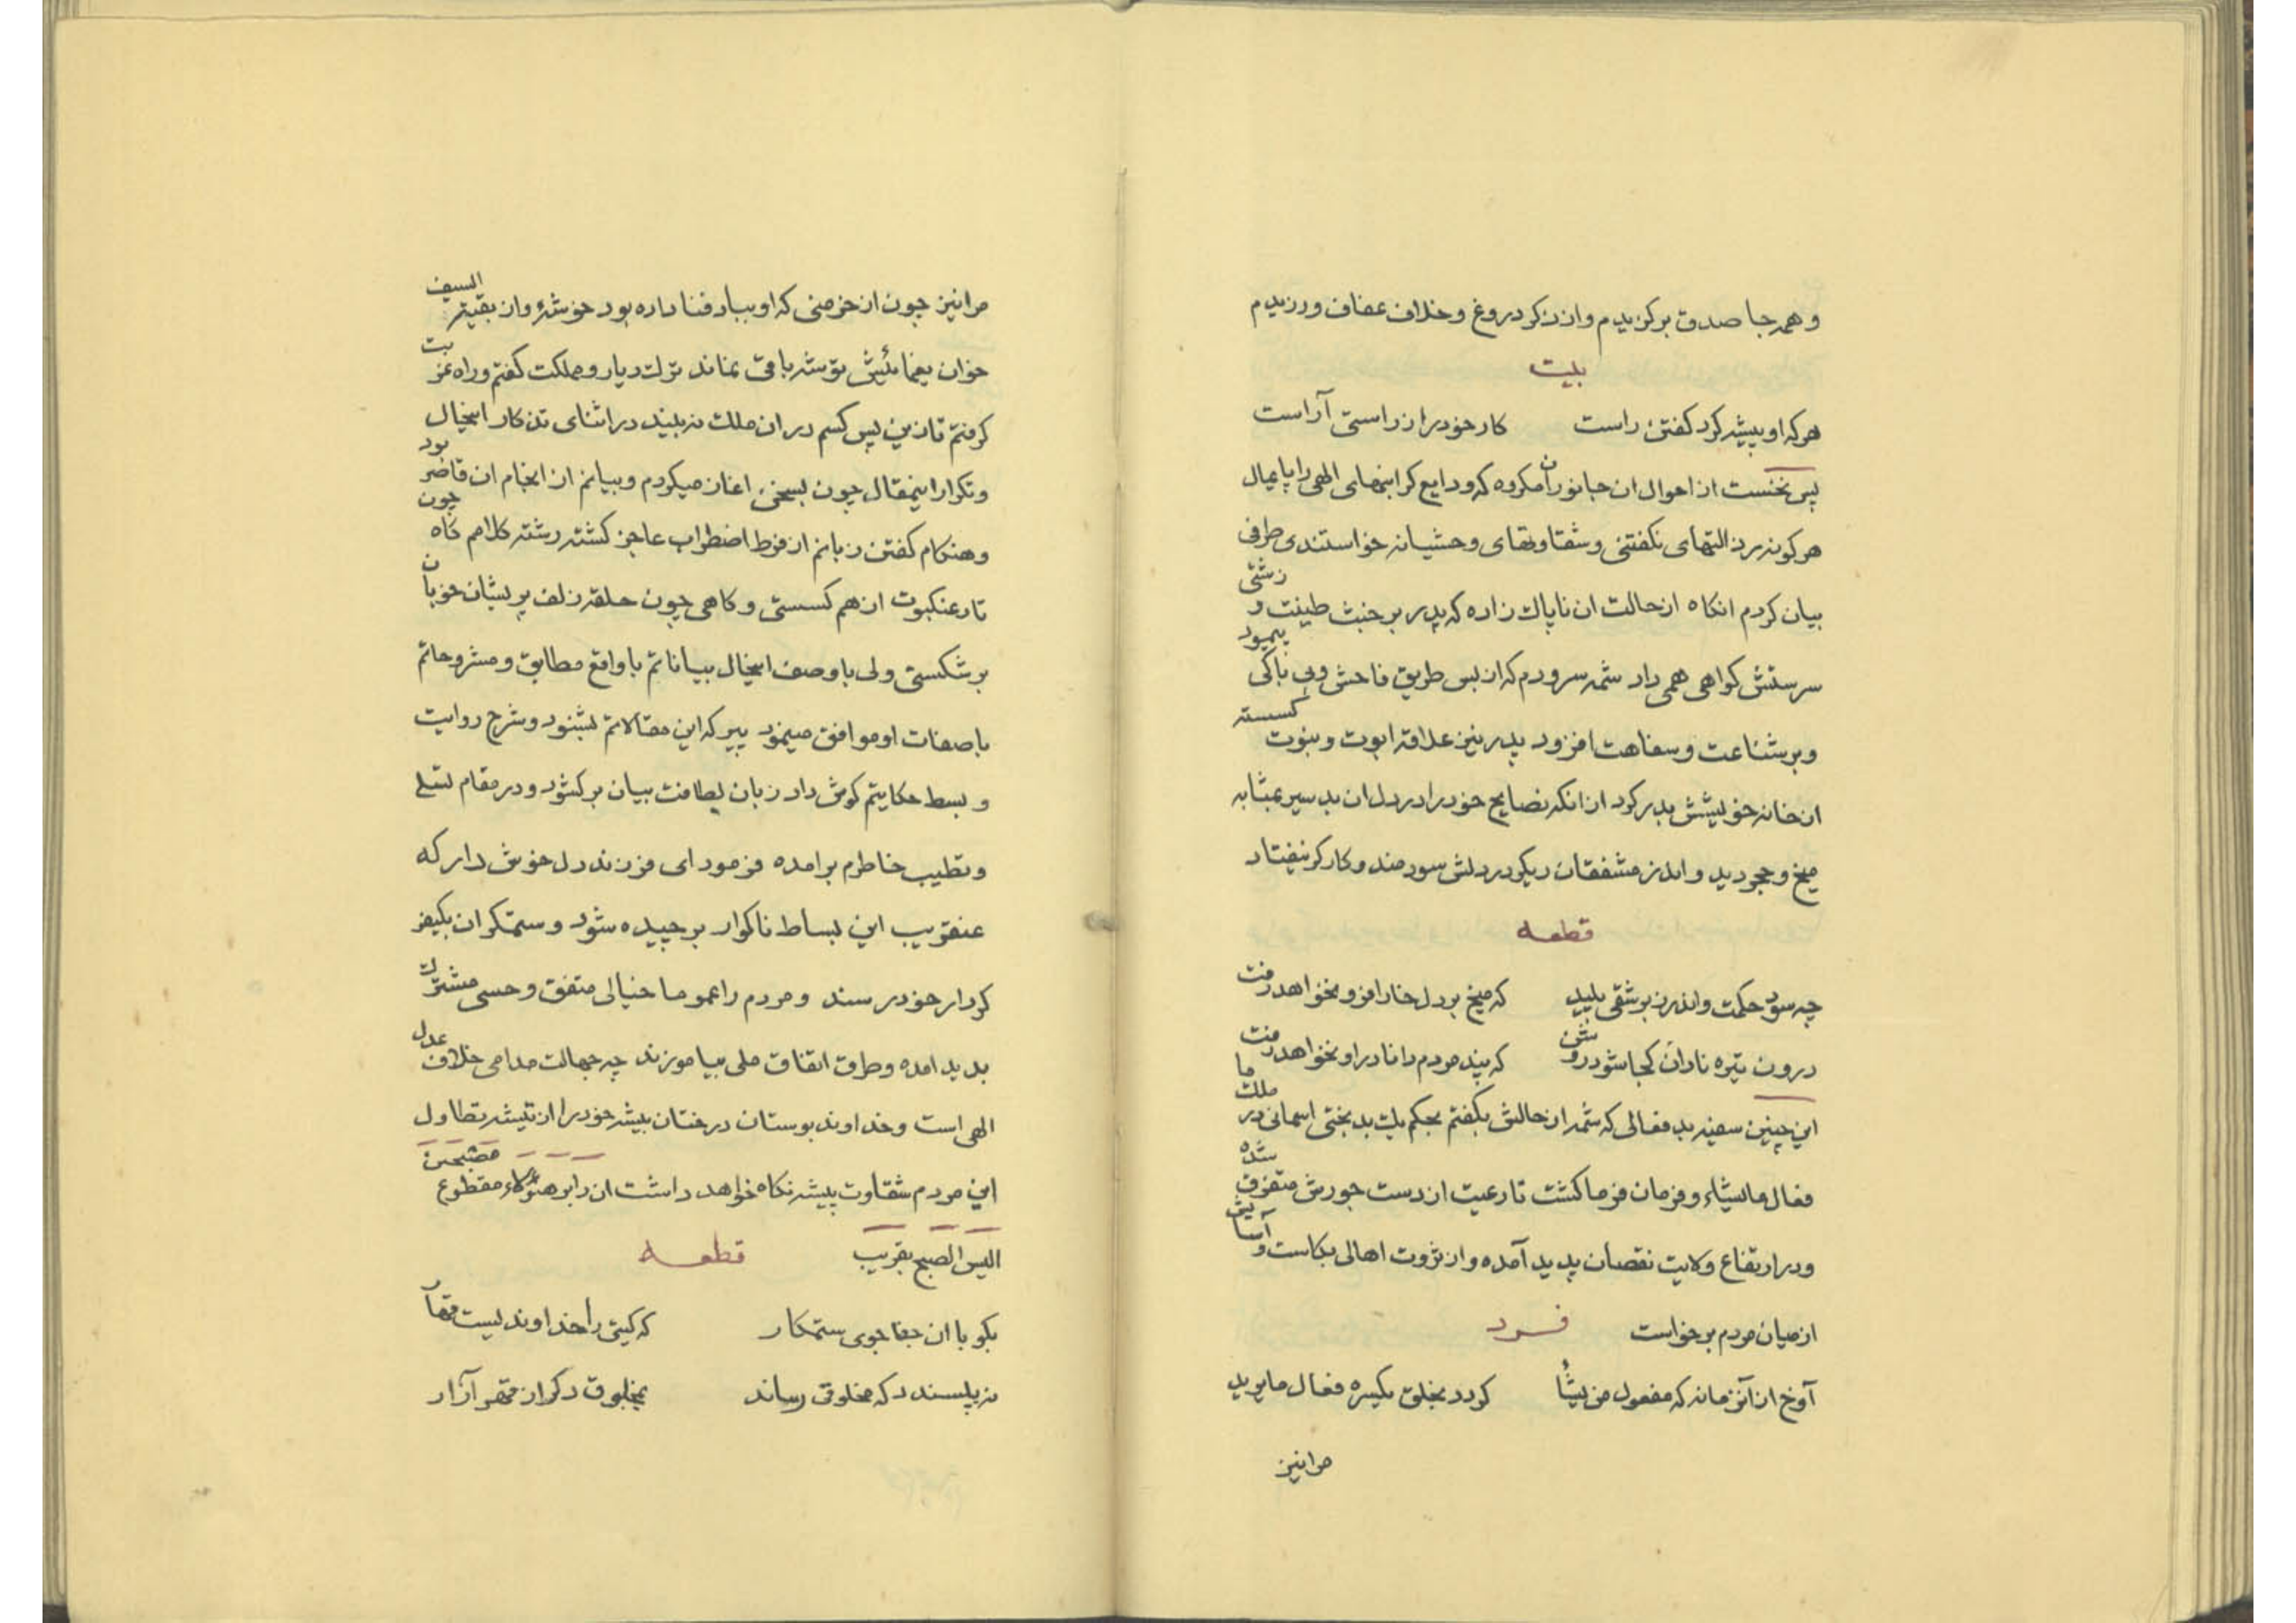 و همه جا صدق برگزیدم و از ذکر دروغ و خلاف عفاف ورزیدم
بیت
هرکه او پیشه کرد کفتن راست کار خود را ز راستی آراست
پس نخست از احوال ان جانوران مکروه که ودایع کرانبهای الهی را پایمال
هرکونه رذالتهای نکفتنی و شقاوتهای وحشیانه خواستندی طرفی
بیان کردم انکاه از حالت ان ناپاک زاده که پدر بر خبث طینت و زشتی
سرستش کواهی همی داد شمه سرودم که از بس طریق فاحش و بی باکی پیمود
و بر شناعت و سفاهت افزود پدر نیز علاقه ابوت و بنوت کسسته
از خانه خویشش بدر کرد از انکه نصایح خود را در دل ان بد سیر بمثابه
میخ و حجر دید و اندرز مشفقان دیکر در دلش سودمند و کارکر نیفتاد
قطعه
چه سود حکمت و اندرز بر شقی پلید که میخ بر دل خارا فرو نخواهد رفت
درون تیره نادان کجا شود روشن که پند مردم دانا در او نخواهد رفت
این چنین سفیه بد فعالی که شمه از حالش بکفتم بحکم بدبختی اسمانی در ملک ما
فعال مایشاء و فرمان فرما کشت تا رعیت از دست جورش متفرق شده
و در ارتفاع ولایت نقصان پدید آمده و از ثروت اهالی بکاست و آسایش
از میان مردم برخواست فرد
آوخ از آنزمانه که مفعول من یشأ کردد بخلق یکسره فعال ما یرید
مرا نیز
مرا نیز چون از خرمنی که او بباد فنا داده بود خوشهٔ و از بقیة السیف
خوان یغمائیش توشه باقی نماند ترک دیار و مملکت کفتم و راه غربت
کرفتم تا زین پس کسم در ان ملک نه بیند در اثنای تذکار اینحال
و تکرار اینمقال چون بسخن اغاز میکردم و بیانم از انجام ان قاصر بود
و هنکام کفتن زبانم از فرط اضطراب عاجز کشته رشته کلامم کاه چون
تار عنکبوت از هم کسستی و کاهی چون حلقه زلف پریشان خوبان
بر شکستی ولی با وصف اینحال بیاناتم با واقع مطابق و مشروحاتم
با صفات او موافق مینمود پیر که این مقالاتم بشنود و شرح روایت
و بسط حکایتم کوش داد زبان بلطافت بیان برکشود و در مقام تسلی
و تطیب خاطرم برامده فرمود ای فرزند دل خوش دار که
عنقریب این بساط ناکوار برچیده شود و ستمکران بکیفر
کردار خود رسند و مردم را عموما خیالی متفق و حسی مشترک
پدید امده و طرق اتفاق ملی بیاموزند چه جهالت مدامی خلاف عدل
الهی است و خداوند بوستان درختان بیشه خود را از تیشه تطاول
این مردم شقاوت پیشه نکاه خواهد داشت ان دابر هؤلاء مقطوع مصبحین
الیس الصبح بقریب قطعه
بکو با ان جفاجوی ستمکار که کیتی را خداوندیست قهار
نه پسندد که مخلوقی رساند بمخلوق دکر از قهر آزار